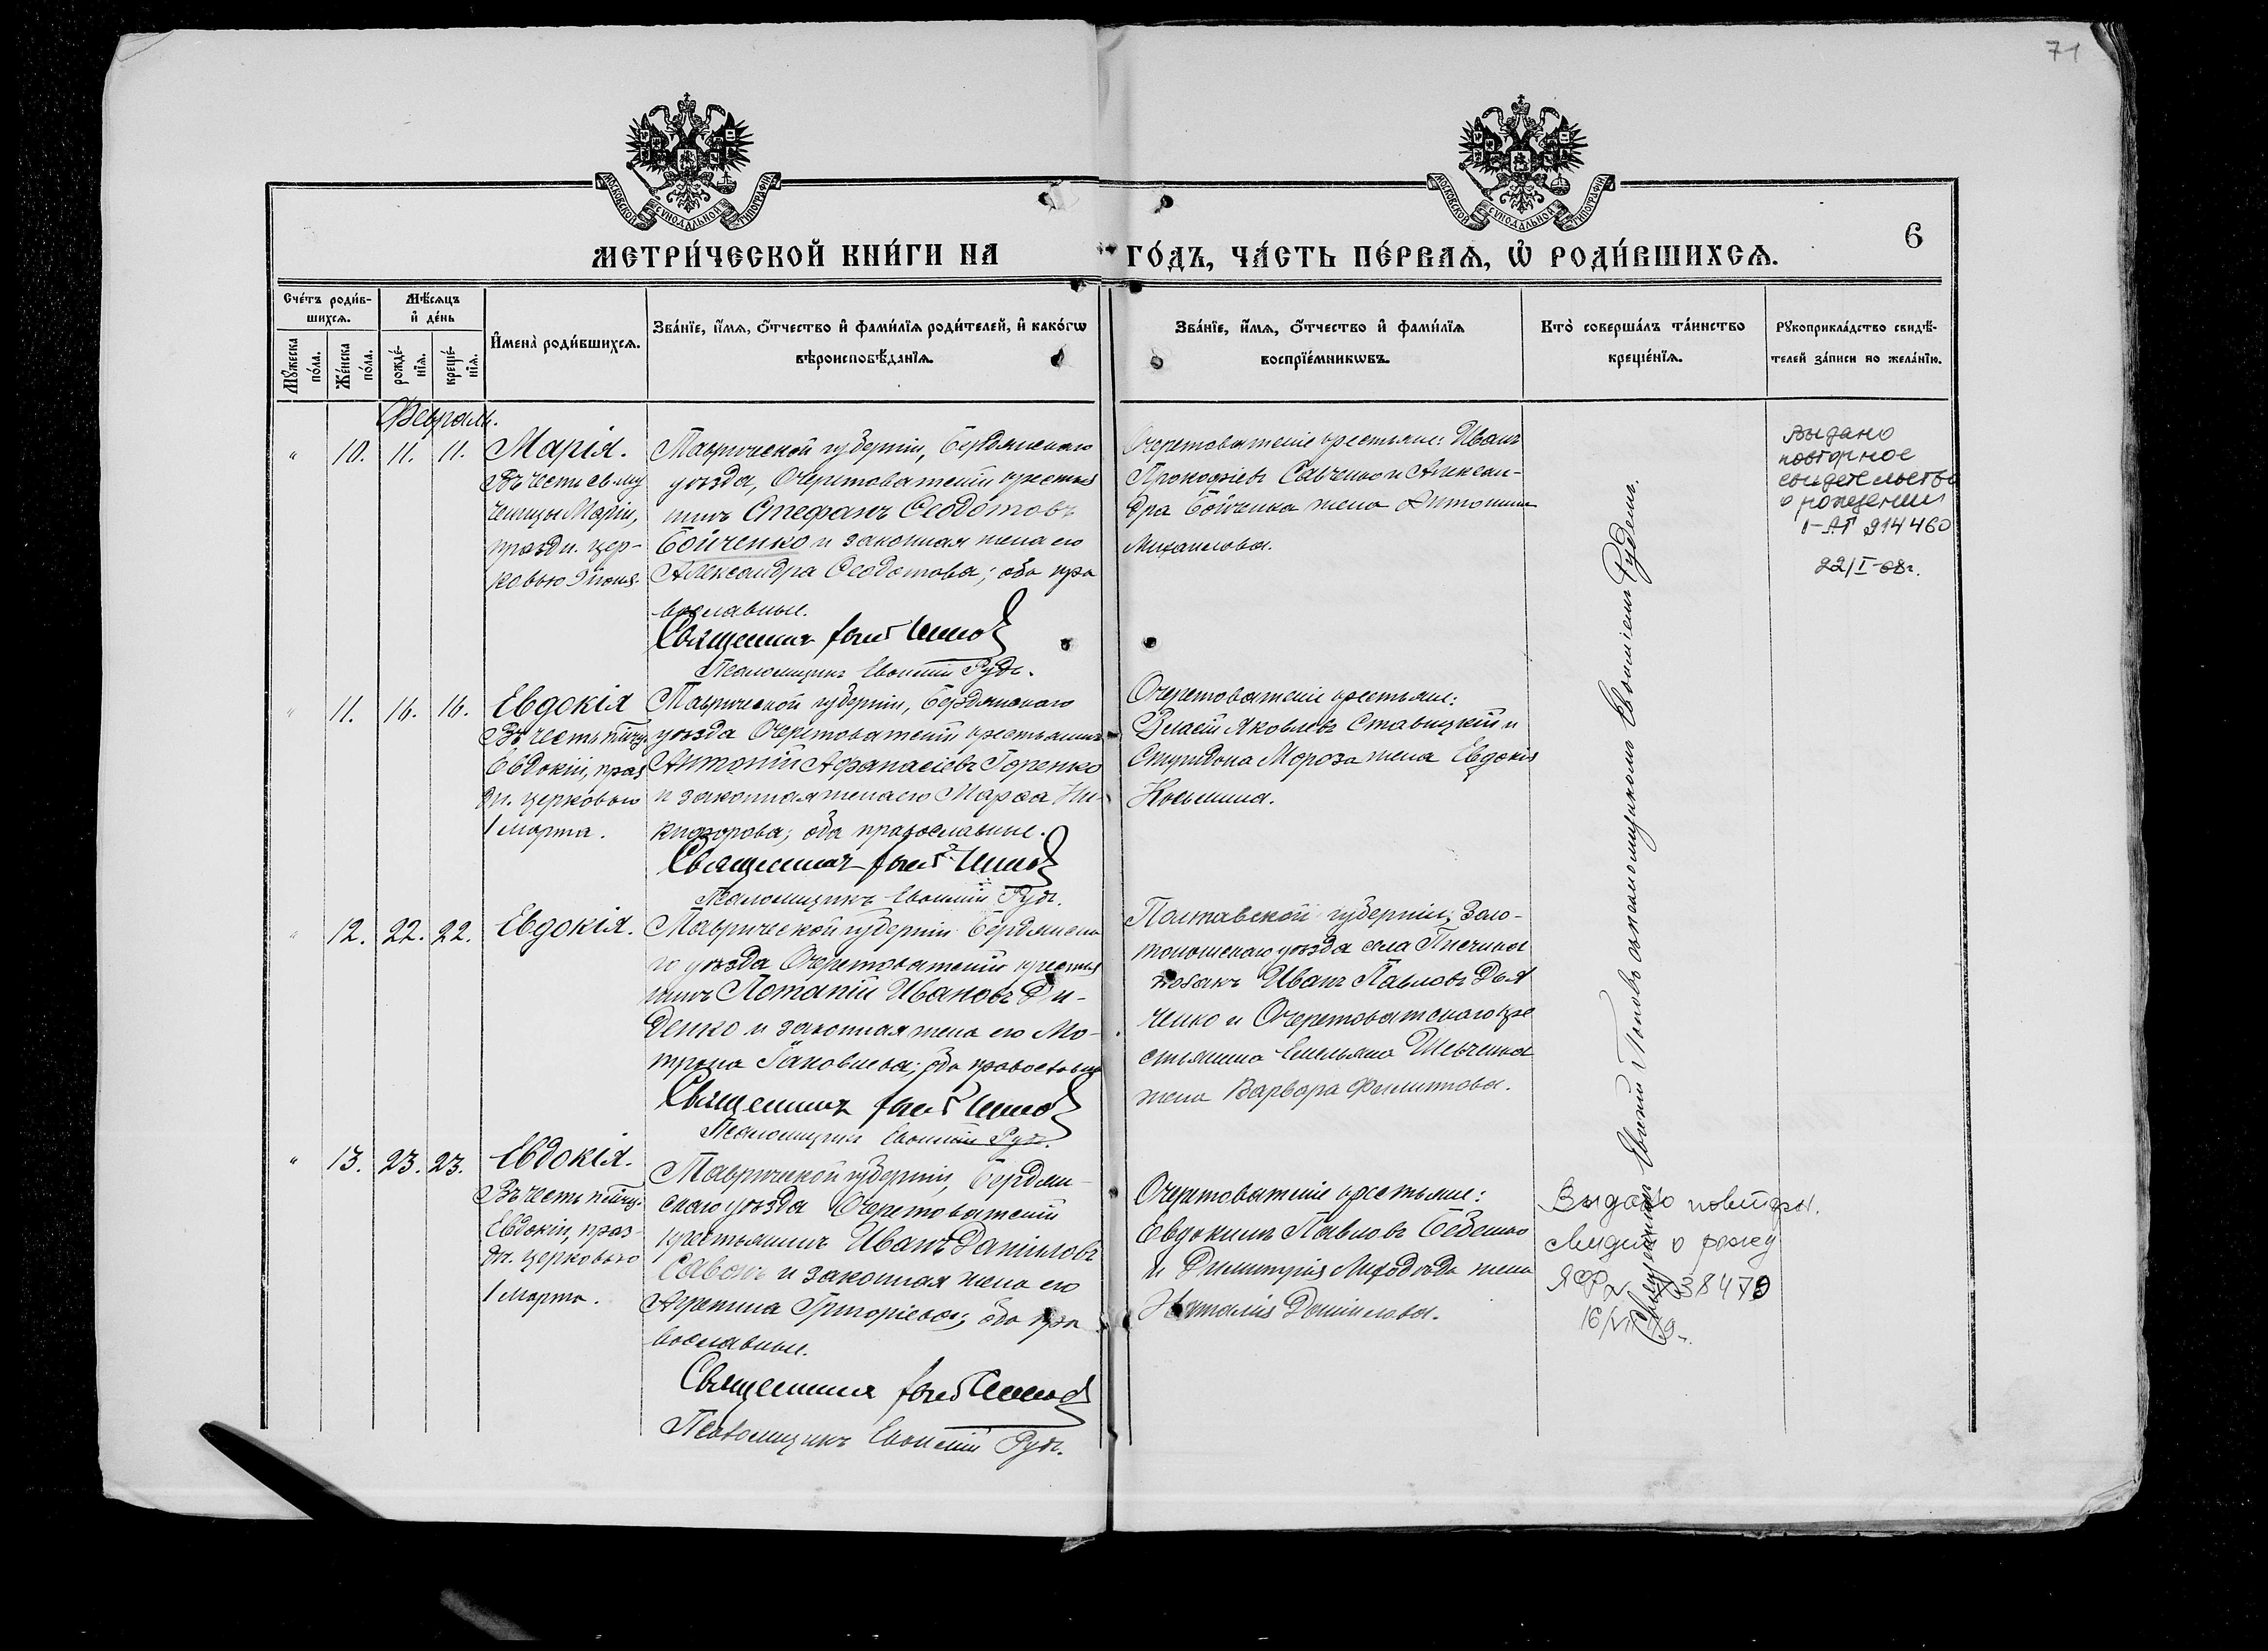 71
МОСКОВСКОЙ СѴНОДАЛЬНОЙ ТИПОГРАФІИ
МОСКОВСКОЙ СѴНОДАЛЬНОЙ ТИПОГРАФІИ
6
МЕТРИ́ЧЕСКОЙ КНИ́ГИ НА
ГО́ДЪ, ЧА́СТЬ ПЕ́РВАѦ, Ѡ҆ РОДИ́ВШИХСѦ.
Сче́тъ роди́в-
шихсѧ.
Мѣ́сѧцъ
и҆ де́нь
Мꙋ́жеска
по́ла.
Же́нска
по́ла.
рожде́-
нїѧ.
креще́-
нїѧ.
И҆мена̀ роди́вшихсѧ.
Зва́нїе, и҆́мѧ, ѻ҆́тчество и҆ фами́лїѧ роди́телей, и҆ како́гѡ
вѣроисповѣ́данїѧ.
Зва́нїе, и҆́мѧ, ѻ҆́тчество и҆ фами́лїѧ
воспрїе́мникѡвъ.
Кто̀ соверша́лъ та́инство
креще́нїѧ.
Рꙋкоприкла́дство свидѣ́-
телей за́писи по жела́нїю.
Февраль.
" 10. 11. 11.
Марія.
Въ честь св. му
ченицы Маріи,
праздн. цер-
ковью 9 Іюня.
Таврической губерніи, Бердянскаго
уѣзда, Очеретоватскій крестья
нинъ Стефанъ Ѳеодотовъ
Бойченко и законная жена его
Александра Ѳеодотова; оба пра
вославные.
Священникъ
Псаломщикъ Евѳимій Руд.
Очеретоватскіе крестьяне: Иванъ
Прокофіевъ Савченко и Алексан-
дра Бойченка жена Антонина
Михаилова.
Выдано
повторное
свидетельство
о рождении
I-АП 214460
22/I-08г.
" 11. 16. 16.
Евдокія
Въ честь пмчц.
Евдокіи, праз
дн. церковью
1 марта.
Таврической губерніи, Бердянскаго
уѣзда Очеретоватскій крестьянинъ
Антоній Афанасіевъ Горенко
и законная жена его Марѳа Ни-
кифорова; оба православные.
Священникъ
Псаломщикъ Евѳимій Руд.
Очеретоватскіе крестьяне:
Власій Яковлевъ Ставицкій и
Спиридона Мороза жена Евдокія
Косьмина.
" 12. 22. 22.
Евдокія.
Таврической губерніи Бердянска
го уѣзда Очеретоватскій крестья
нинъ Потапій Ивановъ Ди-
денко и законная жена его Мо-
трона Іаковлева; оба православные
Священникъ
Псаломщикъ Евѳимій Руд.
Полтавской губерніи, Золо-
тоношскаго уѣзда села
козакъ Иванъ Павловъ Дья
ченко и Очеретоватскаго кре
стьянина Емельяна Шевченка
жена Варвара Филиппова.
" 13. 23. 23.
Евдокія.
Въ честь пмчц.
Евдокіи, праз-
дн. церковью
1 марта.
Таврической губерніи, Бердян-
скаго уѣзда Очеретоватскій
крестьянинъ Иванъ Даніиловъ
Савонъ и законная жена его
Агрепина Григоріева; оба пра
вославные.
Священникъ
Псаломщикъ Евѳимій Руд.
Очеретоватскіе крестьяне:
Евдокимъ Павловъ Беденко
и Димитрія жена
Наталія Даніилова.
Священникъ Евѳимій Поповъ съ псаломщикомъ Евѳиміемъ Руденъ.
Выдано повторн.
о рожд
38479